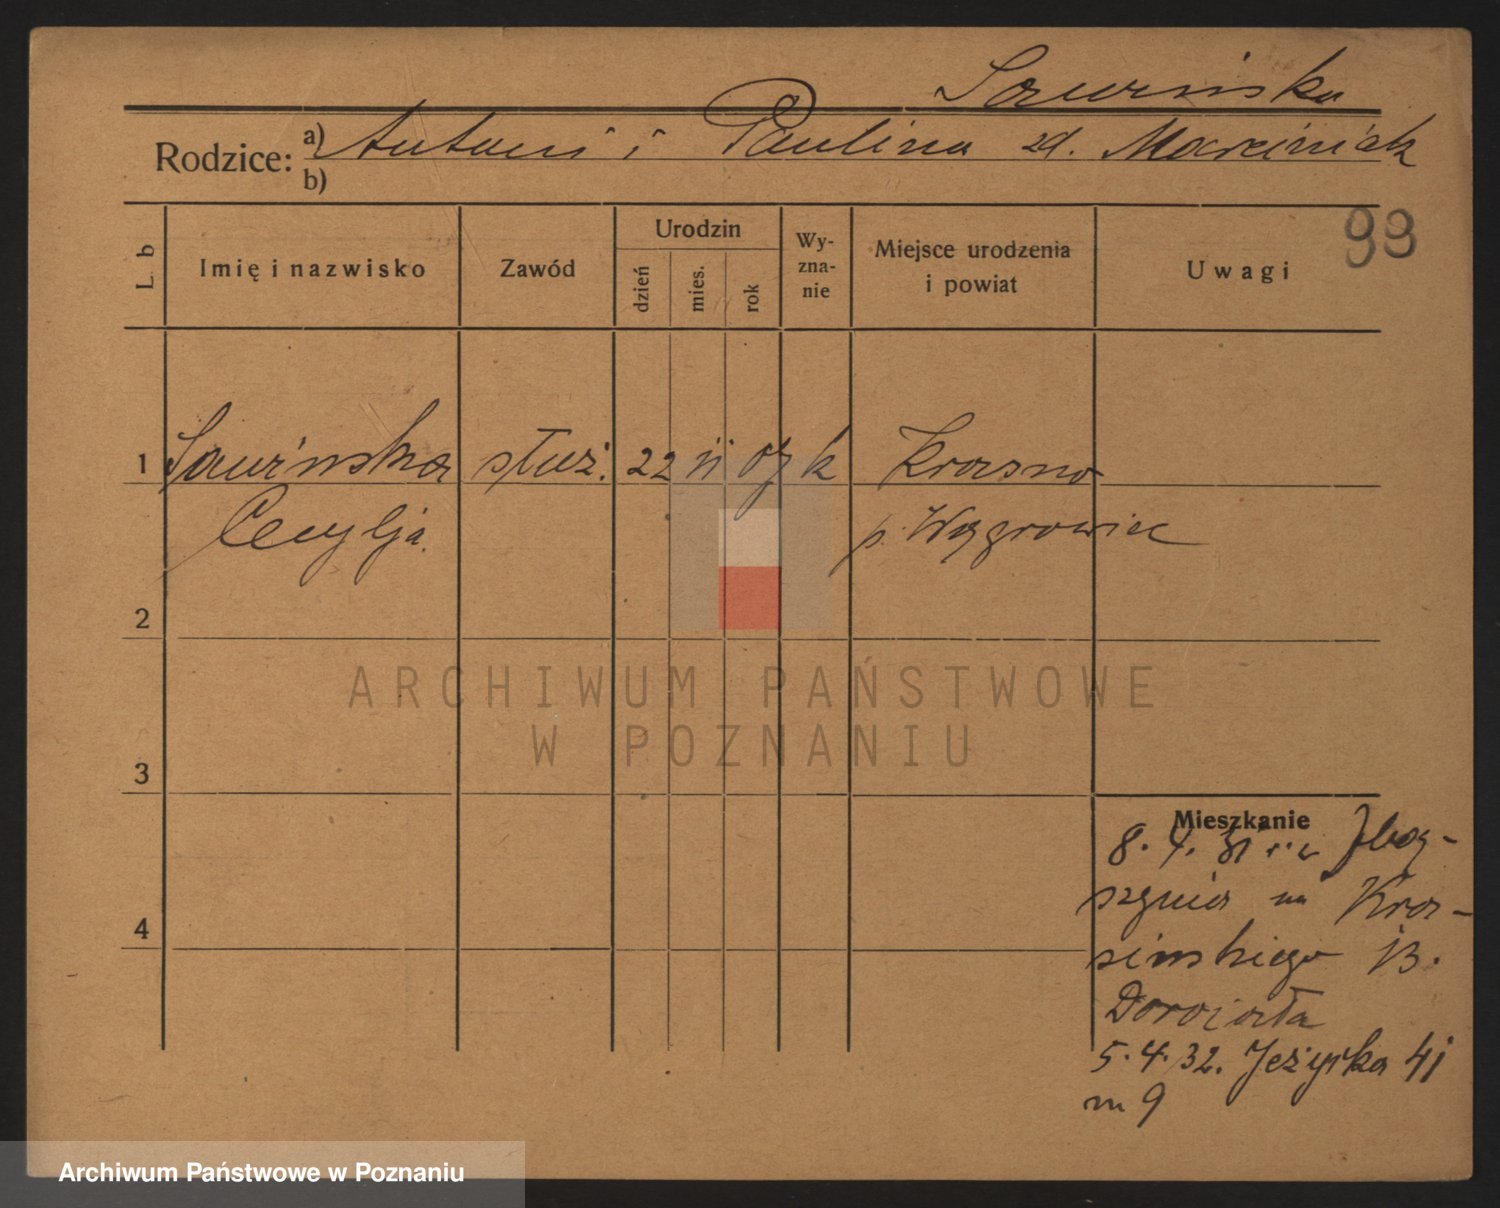 Sawińska
Rodzice: a) Antoni i Paulina zd. Marciniak
b)
99
L. b Imię i nazwisko Zawód Urodzin dzień mies. rok Wy-zna-nie Miejsce urodzenia i powiat Uwagi
1 Sawińska służ. 22 11 07 k Krosno
Cecylja. p. Wągrowiec
2
3
4
Mieszkanie
8. 4. 31
na
13.
5. 4. 32. Jeżycka 41
m 9
ARCHIWUM PAŃSTWOWE
W POZNANIU
Archiwum Państwowe w Poznaniu